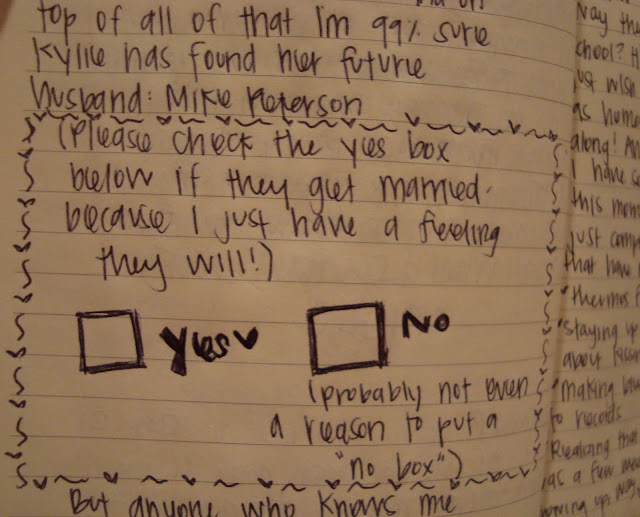 top of all of that I'm 99% sure
Kylie has found her future
Husband: Mike Peterson
(Please check the yes box
below if they get married.
because I just have a feeling
they will!)
Yes No
(probably not even
a reason to put a
"no box")
But anyone who knows me
Nay the
chool? H
just wish
as home
along! An
I have
this mom
just comp
that have
"thermos
"staying up
about
"making
to records
"Realizing that
as a few
up.